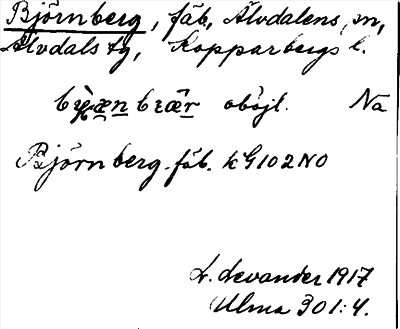 Björnberg, fäb, Älvdalens sn,
Älvdals tg, Kopparbergs l.
oböjl. Na
Björnberg fäb. k G102NO
L. Levander 1917
Ulma 301:4.